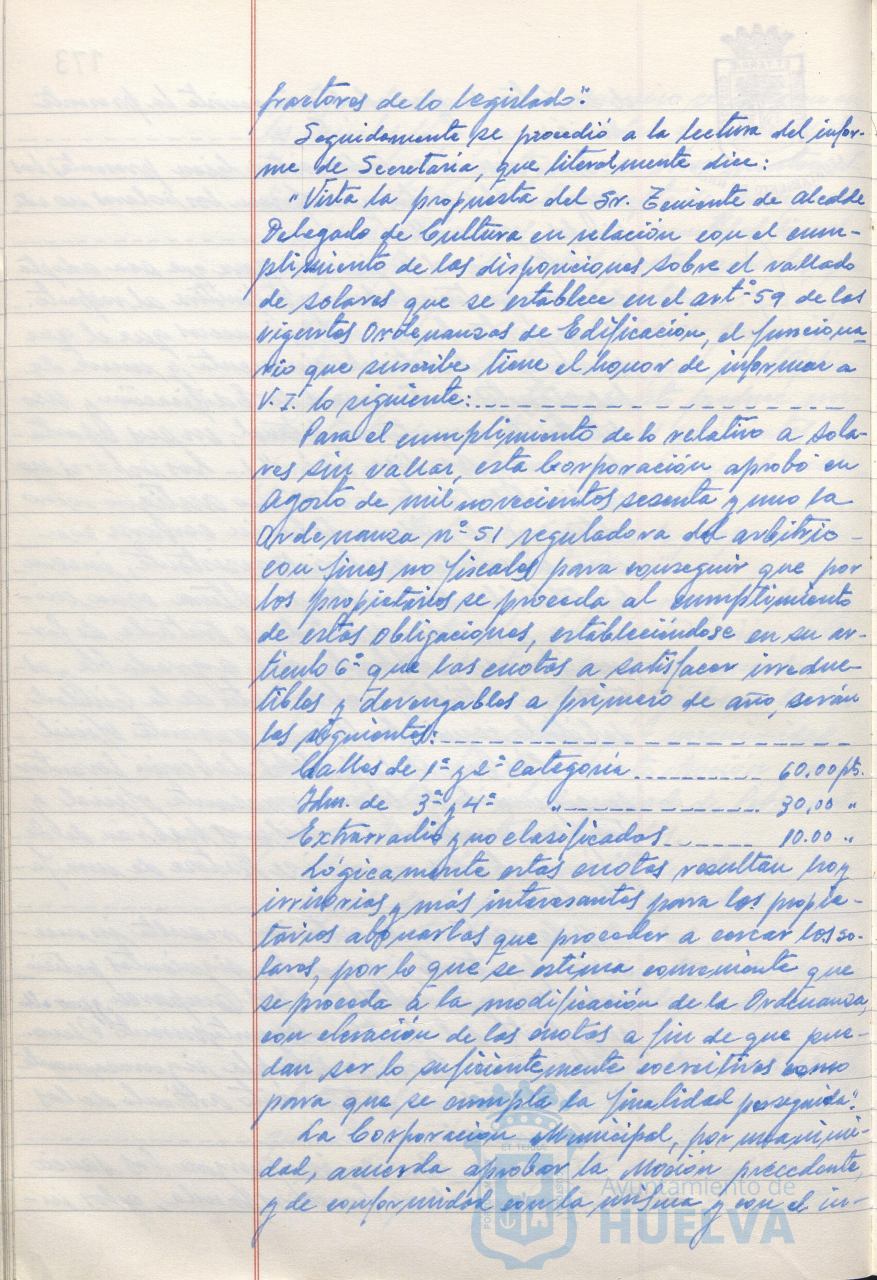 fractores de lo legislado".
Seguidamente se procedió a la lectura del infor-
me de Secretaría, que literalmente dice:
"Vista la propuesta del Sr. Teniente de Alcalde
Delegado de Cultura en relación con el cum-
plimiento de las disposiciones sobre el vallado
de solares que se establece en el artº 59 de las
vigentes Ordenanzas de Edificación, el funciona-
rio que suscribe tiene el honor de informar a
V.I. lo siguiente:
Para el cumplimiento de lo relativo a sola-
res sin vallar, esta Corporación aprobó en
Agosto de mil novecientos sesenta y uno la
Ordenanza nº 51 reguladora del arbitrio
con fines no fiscales para conseguir que por
los propietarios se proceda al cumplimiento
de estas obligaciones, estableciéndose en su ar-
tículo 6º que las cuotas a satisfacer irreduc-
tibles y devengables a primero de año, serán
las siguientes:
Calles de 1ª y 2ª Categoría 60,00 pts.
Idm. de 3ª y 4ª " 30,00 "
Extrarradio y no clasificadas 10.00 "
Lógicamente estas cuotas resultan hoy
irrisorias y más interesantes para los propie-
tarios abonarlas que proceder a cercar los so-
lares, por lo que se estima conveniente que
se proceda a la modificación de la Ordenanza,
con elevación de las cuotas a fin de que pue-
dan ser lo suficientemente coercitivas como
para que se cumpla la finalidad perseguida".
La Corporación Municipal, por unanimi-
dad, acuerda aprobar la Moción precedente,
y de conformidad con la misma y con el in-
Ayuntamiento de
HUELVA